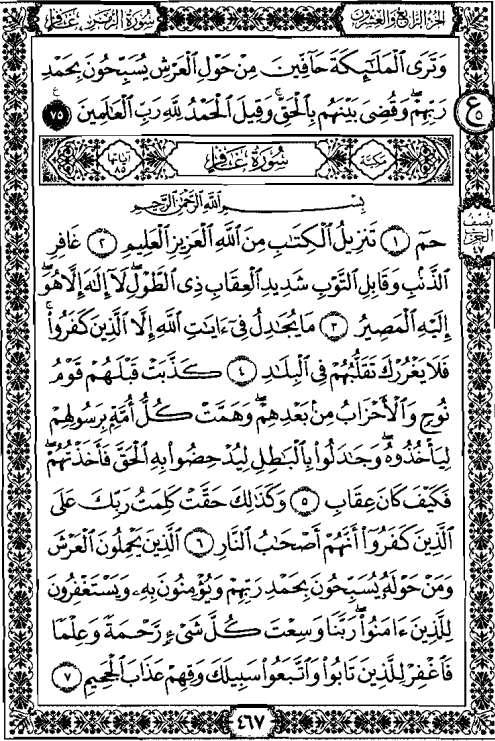 الجزء الرابع والعشرون
سورة الزمر غافر
وَتَرَى ٱلْمَلَٰٓئِكَةَ حَآفِّينَ مِنْ حَوْلِ ٱلْعَرْشِ يُسَبِّحُونَ بِحَمْدِ
رَبِّهِمْ ۖ وَقُضِىَ بَيْنَهُم بِٱلْحَقِّ ۚ وَقِيلَ ٱلْحَمْدُ لِلَّهِ رَبِّ ٱلْعَٰلَمِينَ ٧٥
ع ٥
مكية
سُورَةُ غَافِرٍ
آياتها ٨٥
بِسْمِ ٱللَّهِ ٱلرَّحْمَٰنِ ٱلرَّحِيمِ
حمٓ ١ تَنزِيلُ ٱلْكِتَٰبِ مِنَ ٱللَّهِ ٱلْعَزِيزِ ٱلْعَلِيمِ ٢ غَافِرِ
نصف الحزب ٤٧
ٱلذَّنۢبِ وَقَابِلِ ٱلتَّوْبِ شَدِيدِ ٱلْعِقَابِ ذِى ٱلطَّوْلِ ۖ لَآ إِلَٰهَ إِلَّا هُوَ ۖ
إِلَيْهِ ٱلْمَصِيرُ ٣ مَا يُجَٰدِلُ فِىٓ ءَايَٰتِ ٱللَّهِ إِلَّا ٱلَّذِينَ كَفَرُوا۟
فَلَا يَغْرُرْكَ تَقَلُّبُهُمْ فِى ٱلْبِلَٰدِ ٤ كَذَّبَتْ قَبْلَهُمْ قَوْمُ
نُوحٍ وَٱلْأَحْزَابُ مِنۢ بَعْدِهِمْ ۖ وَهَمَّتْ كُلُّ أُمَّةٍۭ بِرَسُولِهِمْ
لِيَأْخُذُوهُ ۖ وَجَٰدَلُوا۟ بِٱلْبَٰطِلِ لِيُدْحِضُوا۟ بِهِ ٱلْحَقَّ فَأَخَذْتُهُمْ ۖ
فَكَيْفَ كَانَ عِقَابِ ٥ وَكَذَٰلِكَ حَقَّتْ كَلِمَتُ رَبِّكَ عَلَى
ٱلَّذِينَ كَفَرُوٓا۟ أَنَّهُمْ أَصْحَٰبُ ٱلنَّارِ ٦ ٱلَّذِينَ يَحْمِلُونَ ٱلْعَرْشَ
وَمَنْ حَوْلَهُۥ يُسَبِّحُونَ بِحَمْدِ رَبِّهِمْ وَيُؤْمِنُونَ بِهِۦ وَيَسْتَغْفِرُونَ
لِلَّذِينَ ءَامَنُوا۟ ۖ رَبَّنَا وَسِعْتَ كُلَّ شَىْءٍ رَّحْمَةً وَعِلْمًا
فَٱغْفِرْ لِلَّذِينَ تَابُوا۟ وَٱتَّبَعُوا۟ سَبِيلَكَ وَقِهِمْ عَذَابَ ٱلْجَحِيمِ ٧
٤٦٧